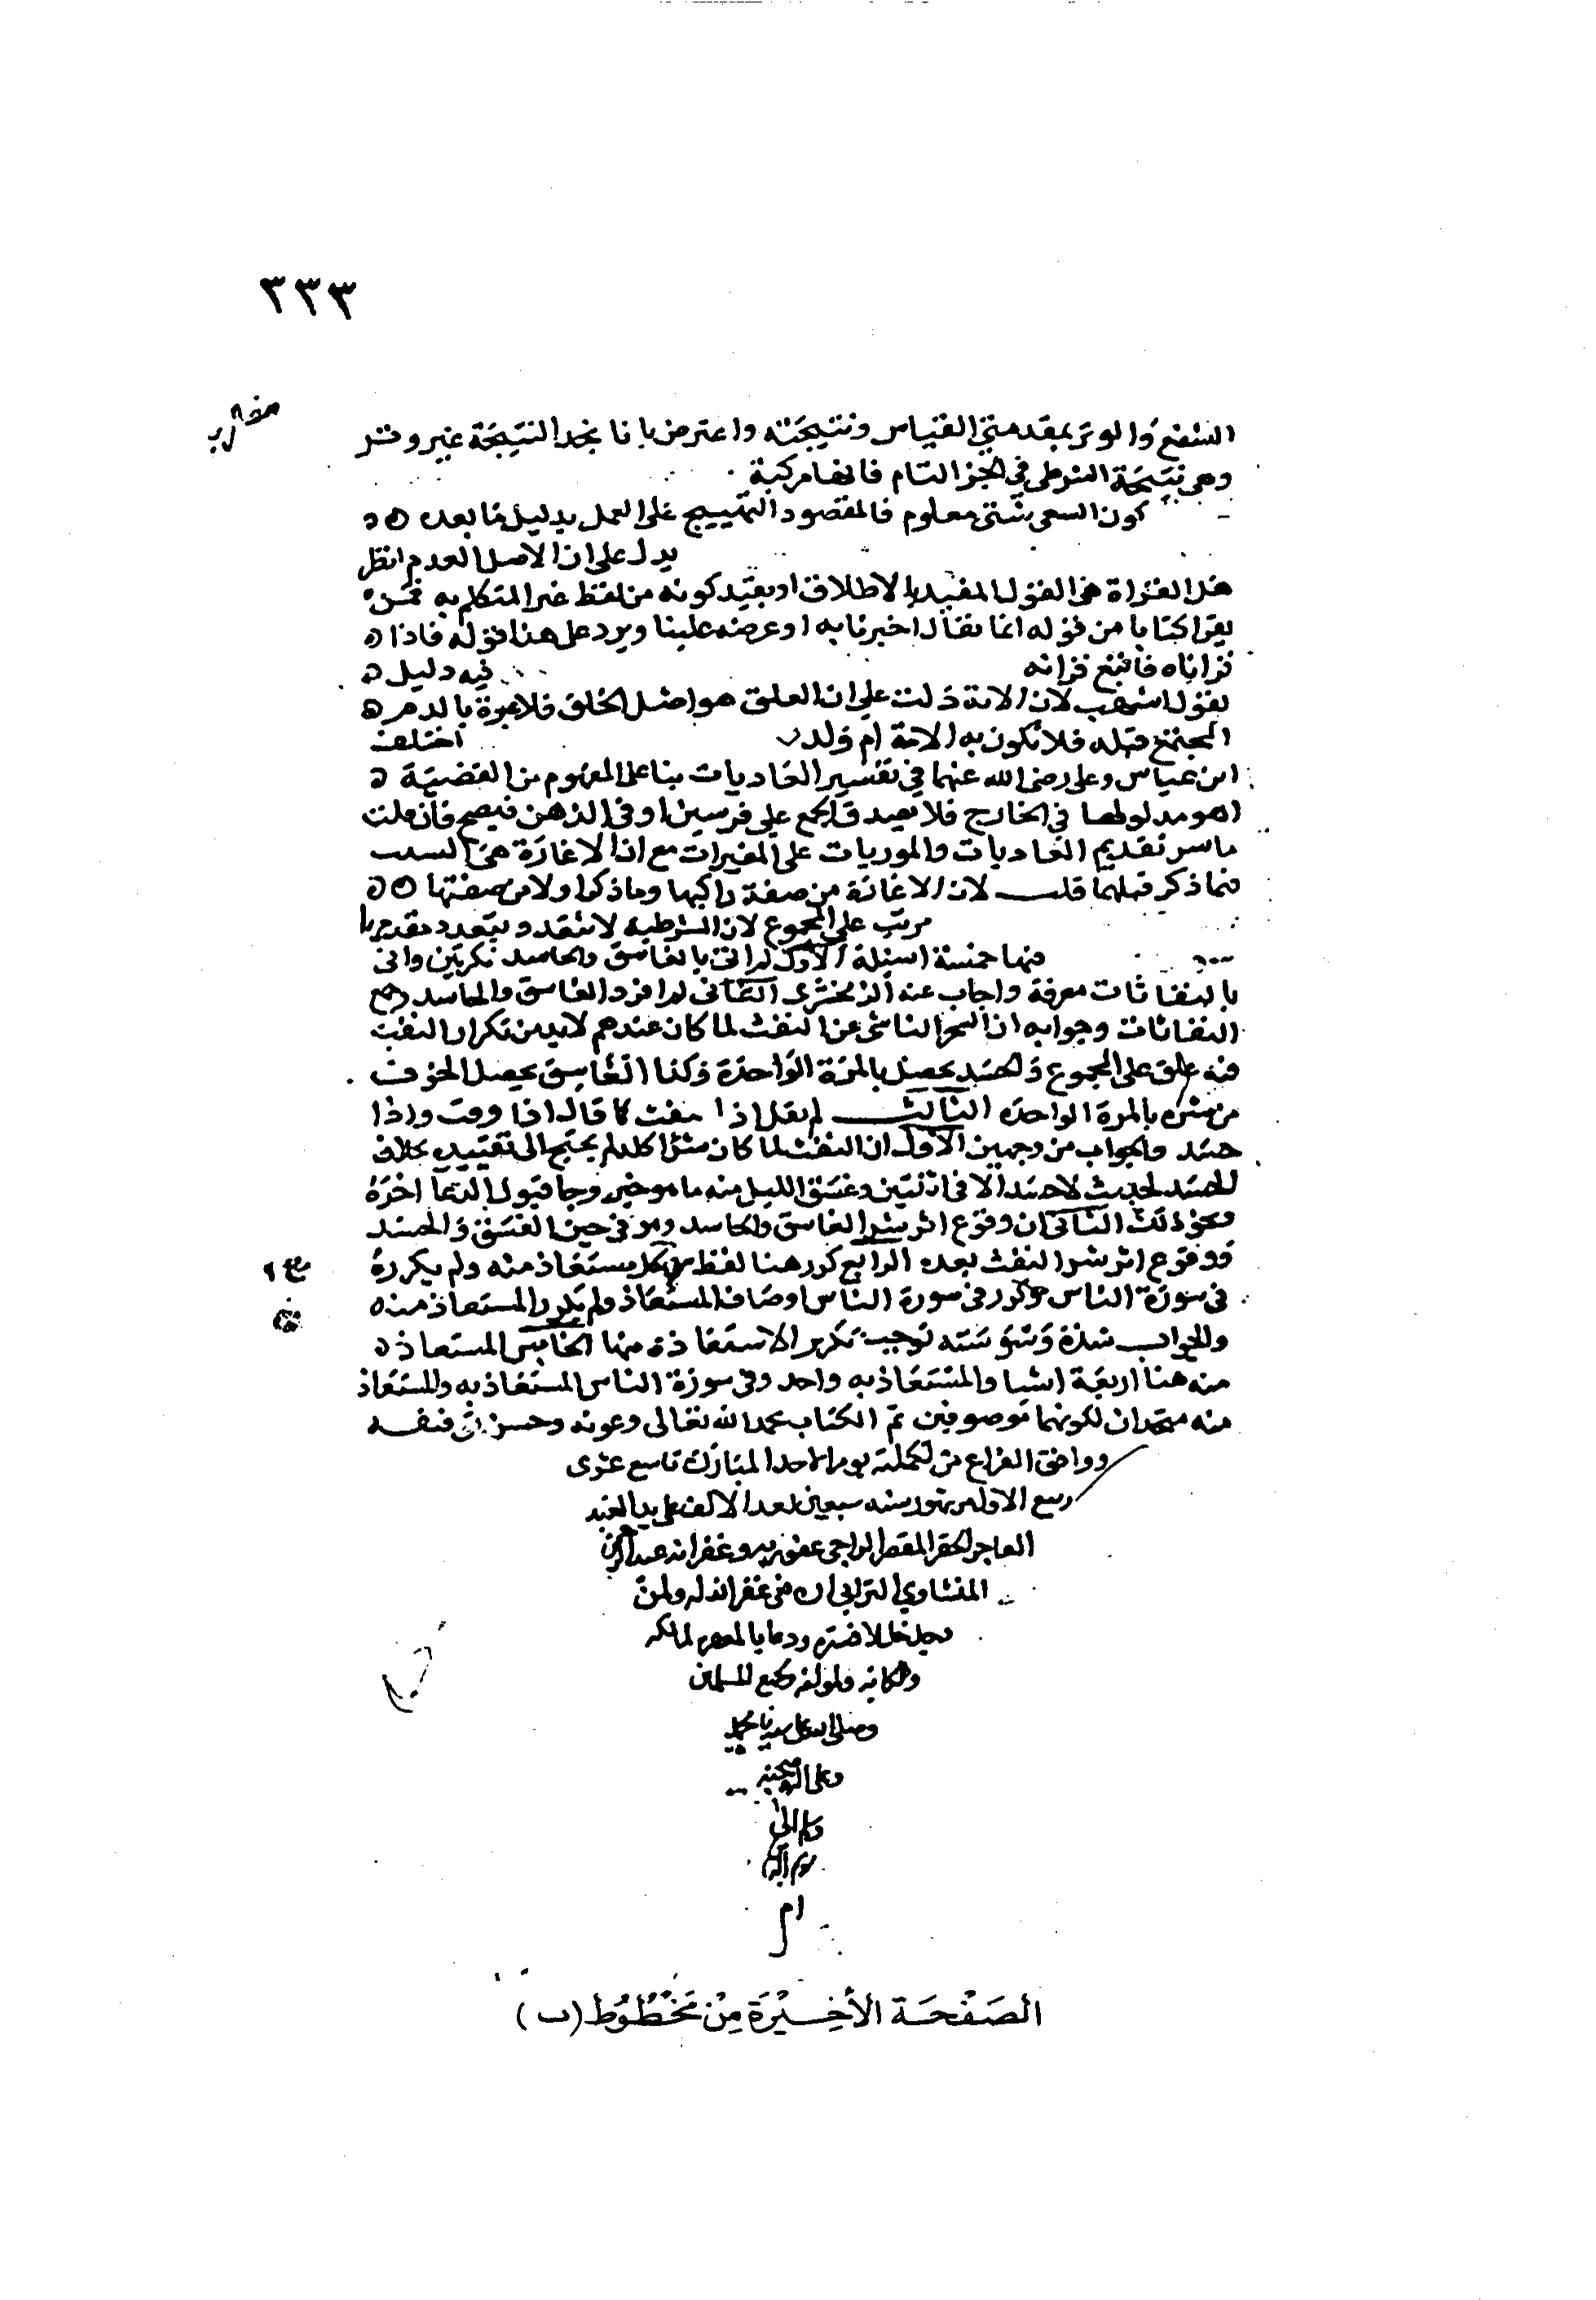 ٣٣٣
الشفع والوتر بمقدمتي القياس ونتيجته واعترض بانا نجد النتيجة غير وتر
وهي نتيجة الشرطي في الجز التام فانها مركبة
كون السعي شتى معلوم فالمقصود التهييج على العمل بدليل ما بعده
يدل على ان الاصل العدم انظر
هذا القراة هي القول المفيد بالاطلاق او بقيد كونه من لفظ غير المتكلم به فمن
يقرا كتابا من قوله انما يقال اخبرنا به او عرضه علينا ويرد على هذا قوله فاذا
قراناه فاتبع قرانه فيه دليل
لقول اشهب لان الاية دلت على ان العلق هو اصل الخلق فلا عبرة بالدم
المجتمع قبله فلا تكون به الامة ام ولد اختلف
ابن عباس وعلي رضي الله عنهما في تفسير العاديات بنا على المفهوم من القضية
اهو مدلولها في الخارج فلا يصدق الجمع على فرسين او في الذهن فيصح فان قلت
ما سر تقديم العاديات والموريات على المغيرات مع ان الاغارة هي السبب
فيما ذكر قبلها قلت لان الاغارة من صفة راكبها وما ذكر اولا من صفتها
مرتب على المجموع لان الشرطية لا تتعدد بتعدد مقدمها
فيها خمسة اسئلة الاول لم اتى بالغاسق والحاسد نكرتين واتى
بالنفاثات معرفة واجاب عنه الزمخشري الثاني لم افرد الغاسق والحاسد وجمع
النفاثات وجوابه ان السحر الناشئ عن النفث لما كان عندهم لابد من تكرار النفث
فيه علق على المجموع والحسد يحصل بالمرة الواحدة وكذا الغاسق يحصل الخوف
من شره بالمرة الواحدة الثالث لم يقل اذا نفث كما قال اذا وقب واذا
حسد والجواب من وجهين الاول ان النفث لما كان شرا كله لم يحتج الى تقييد بخلاف
الحسد لحديث لا حسد الا في اثنتين وغسق الليل منه ما هو خير وجا قبول الدعا اخره
ونحو ذلك الثاني ان وقوع اثر شر الغاسق والحاسد هو في حين الغسق والحسد
ووقوع اثر شر النفث بعده الرابع كرر هنا لفظ شر لكل مستعاذ منه ولم يكرره
في سورة الناس وكرر في سورة الناس اوصاف المستعاذ ولم يكرر المستعاذ منه
والجواب شدة وسوسته توجب تكرير الاستعاذة منها الخامس المستعاذ
منه هنا اربعة اشيا والمستعاذ به واحد وفي سورة الناس المستعاذ به والمستعاذ
منه متحدان لكونهما موصوفين تم الكتاب بحمد الله تعالى وعونه وحسن توفيقه
ووافق الفراغ من تكملته يوم الاحد المبارك تاسع عشري
ربيع الاول من شهور سنه سبعين بعد الالف على يد العبد
العاجز الحقير المقصر الراجي عفو ربه وغفرانه
المنشاوي غفر الله له ولمن
ودعا بالمغفرة لمالكه
ولكاتبه ولمولفه وجميع المسلمين
وصلى الله على سيدنا محمد
وعلى اله وصحبه
وسلم الى
يوم الدين
ام
الصَفْحَة الأخِيْرَة مِنْ مَخْطُوط (ب)